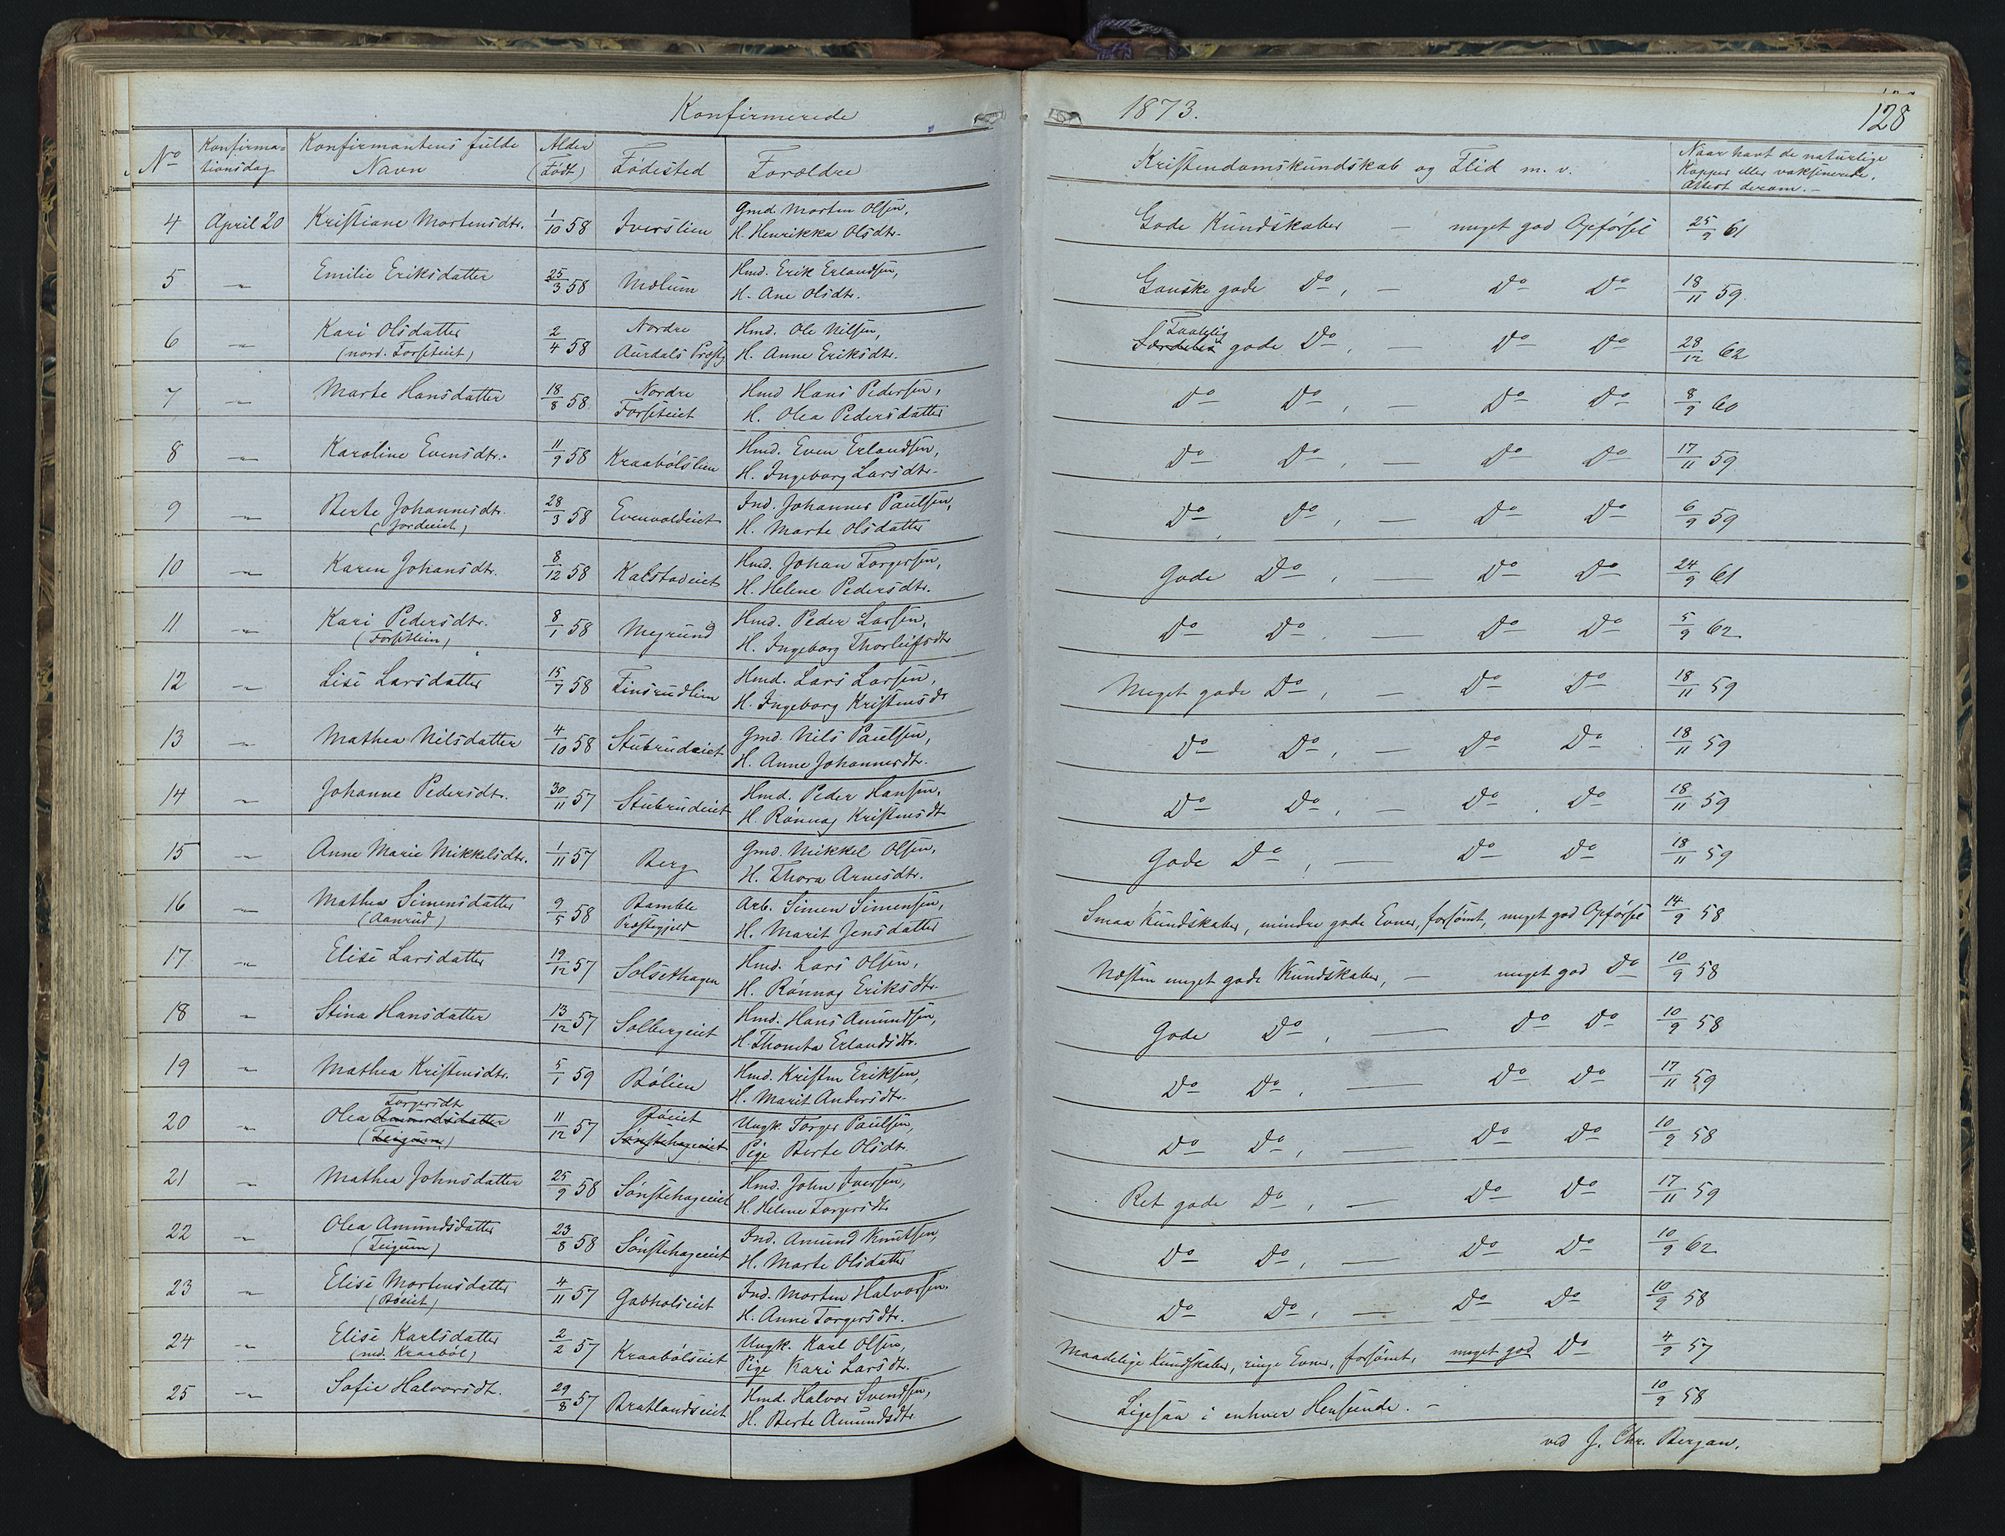 Konfirmerede 1873. 128
No
Konfirma-
tionsdag
Konfirmantens fulde
Navn
Alder
(Født)
Fødested
Forældre
Kristendomskundskab og Flid m. v.
Naar havt de naturlige
Kopper eller vaksinerede,
Attest derom.-
4 April 20 Kristiane Mortensdtr. 1/10 58 Iverslien Gmd. Morten Olsen, H. Henrikka Olsdtr. Gode Kundskaber — meget god Opførsel 25/9 61
5 -„- Emilie Eriksdatter 25/3 58 Mælum Hmd. Erik Erlandsen, H. Ane Olsdtr. Ganske gode Do, — Do Do 18/11 59
6 -„- Kari Olsdatter (nord. Forseteiet) 2/4 58 Nordre Aurdals Præstg Hmd. Ole Nilsen, H. Anne Eriksdtr. Taalelig gode Do, — Do Do 28/12 62
7 -„- Marte Hansdatter 18/8 58 Nordre Forseteiet Hmd Hans Pedersen, H. Olea Pedersdatter Do Do, — Do Do 8/9 60
8 -„- Karoline Evensdtr. 11/9 58 Kraabølslien Hmd. Even Erlandsen, H. Ingeborg Larsdtr. Do Do, — Do Do 17/11 59
9 -„- Berte Johannesdtr. (Jordeiet) 28/3 58 Evenvoldeiet Ind. Johannes Paulsen, H. Marte Olsdatter Do Do, — Do Do 6/9 59
10 -„- Karen Johansdtr. 8/12 58 Kalstadeiet Hmd. Johan Torgersen, H. Helene Pedersdtr. Gode Do, — Do Do 24/9 61
11 -„- Kari Pedersdtr. (Forsetlien) 8/1 58 Megrund Hmd. Peder Larsen, H. Ingeborg Thorleifsdtr Do Do, — Do Do 5/9 62
12 -„- Lise Larsdatter 15/7 58 Finsrudlien Hmd. Lars Larsen, H. Ingeborg Kristensdr Meget gode Do, — Do Do 18/11 59
13 -„- Mathea Nilsdatter 4/10 58 Stubrudeiet Gmd. Nils Paulsen, H. Anne Johannesdtr. Do Do, — Do Do 18/11 59
14 -„- Johanne Pedersdtr. 30/11 57 Stubrudeiet Hmd. Peder Hansen, H. Rønnog Kristensdt Do Do, — Do Do 18/11 59
15 -„- Anne Marie Mikkelsdtr. 1/11 57 Berg Gmd. Mikkel Olsen, H. Thora Arnesdtr. Gode Do, — Do Do 18/11 59
16 -„- Mathea Simensdatter (Aanrud) 9/5 58 Bamble Præstegjeld Arb. Simen Simensen, H. Marit Jensdatter Smaa Kundskaber, mindre gode Evner, forsømt, meget god Opførsel 14/9 58
17 -„- Elise Larsdatter 19/12 57 Solsethagen Hmd. Lars Olsen, H. Rønnog Eriksdtr. Næsten meget gode Kundskaber, — meget god Do 10/9 58
18 -„- Stina Hansdatter 13/12 57 Solbergeiet Hmd. Hans Amundsen, H Thomta Erlandsdtr. Gode Do, — Do Do 10/9 58
19 -„- Mathea Kristensdtr. 5/1 59 Bølien Hmd. Kristen Eriksen, H. Marit Andersdtr. Do Do, — Do Do 17/11 59
20 -„- Olea Torgersdt Amundsdatter (Teigum) 11/12 57 Bøeiet Sønstehageeiet Ungk. Torger Paulsen, Pige Berte Olsdtr. Do Do, — Do Do 10/9 58
21 -„- Mathea Johnsdatter 25/9 58 Sønstehageeiet Hmd. John Iversen, H. Helene Torgersdtr Ret gode Do, — Do Do 17/11 59
22 -„- Olea Amundsdatter (Teigum) 23/8 58 Sønstehageeiet Ind. Amund Knutsen, H. Marte Olsdatter Do Do, — Do Do 10/9 62
23 -„- Elise Mortensdatter (Bøeiet) 4/11 57 Gobholseiet Ind. Morten Halvorsen. H. Anne Torgersdtr. Do Do, — Do Do 10/9 58
24 -„- Elise Karlsdatter (ned. Kraabøl) 2/2 57 Kraabølseiet Ungk. Karl Olsen, Pige Kari Larsdtr. Maadelige Kundskaber, ringe Evner, forsømt, meget god Do 4/9 57
25 -„- Sofie Halvorsdt. 29/8 57 Bratlandseiet Hmd. Halvor Svendsen, H. Berte Amundsdtr Ligesaa i enhver Henseende. - 10/9 58
ved J. Chr. Bergan.